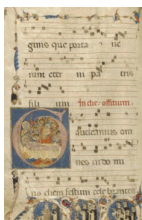 ginis que porta ue
runt eter ni pa tris
fili um In die. offitium.
Gaudeamus om
nes in do mi
no diem festum cele brantes